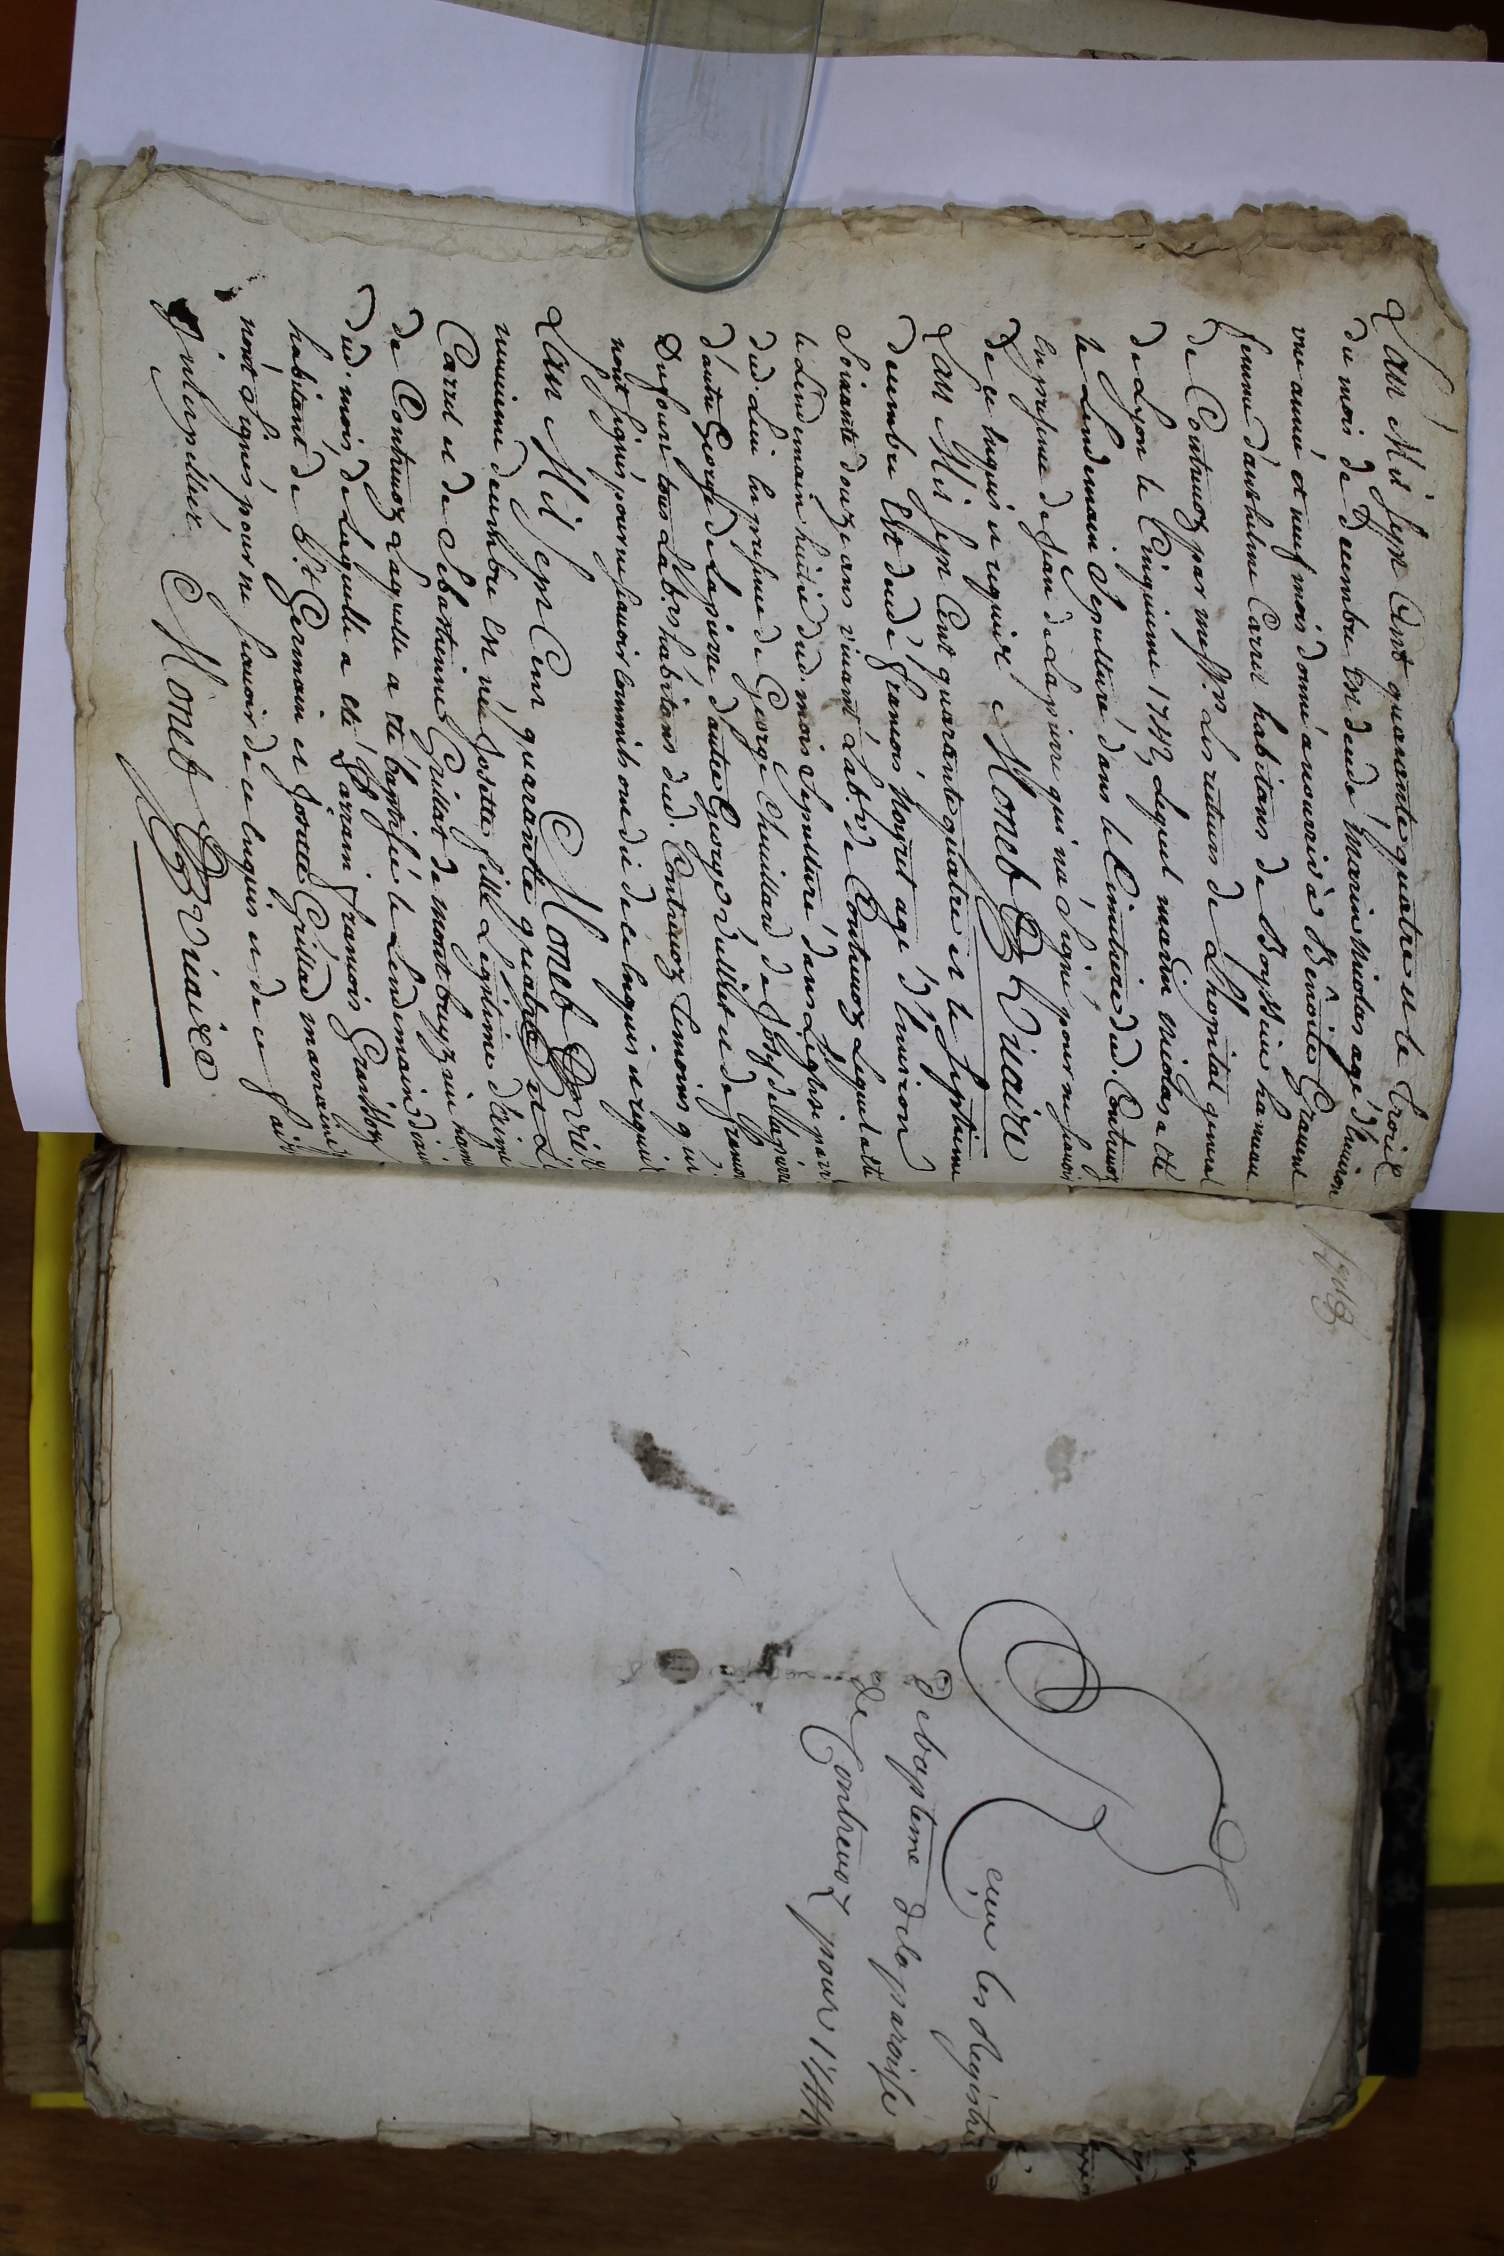 Lan Mil Sept Cent quarante quatre et le troisi
du mois de Decembre Est decedé Marin Nicolas agé d'Environ
une année et neuf mois donné a nourir à Benoite
femme d'anthelme Carrel habitans de Boyssin hameau
de Contrevoz par mess.rs Les recteurs de L'hopital general
de Lyon le Cinquieme 1743 Lequel marin Nicolas a été
le Lendemain Sepulturé dans le Cimitiere dud. Contrevoz
En presence de Jean de Lapierre qui na Signé pour ne scavoir
de ce Enquis et requis Monet Vicaire
Lan Mil Sept Cent quarante quatre et le Septieme
decembre Est decedé francois agé d'Environ
Soixante douze ans vivant Lab.r de Contrevoz Lequel a été
le Lendemain huitie dud. mois Sepulturé dans Leglise parr
dud. Lieu En presence de George Chevillard de Josep dellapierre
d'autre George de Lapierre d'autre George et de francois
Dufour tous Lab.rs habitans dud. Contrevoz temoins qui
nont Signés pour ne scavoir comme ils ont dit de ce Enquis et requis
Monet Vic
Lan Mil Sept Cent quarante quatre et Le
neuvieme decembre Est née Josette fille Legitime d'
Carrel et de Sebastienne Grillat de montbreyzieu hame
de Contrevoz Laquelle a été baptisée le Lendemain dix
dud. mois de Laquelle a été Parrain francois
habitant de S.t Germain et Josette Grillat marraine
nont Signés pour ne scavoir de ce Enquis et de ce faire
Interpellés Monet Vicaire
Reçeu les Registre
de baptême de la paroisse
de Contrevoz pour 1744